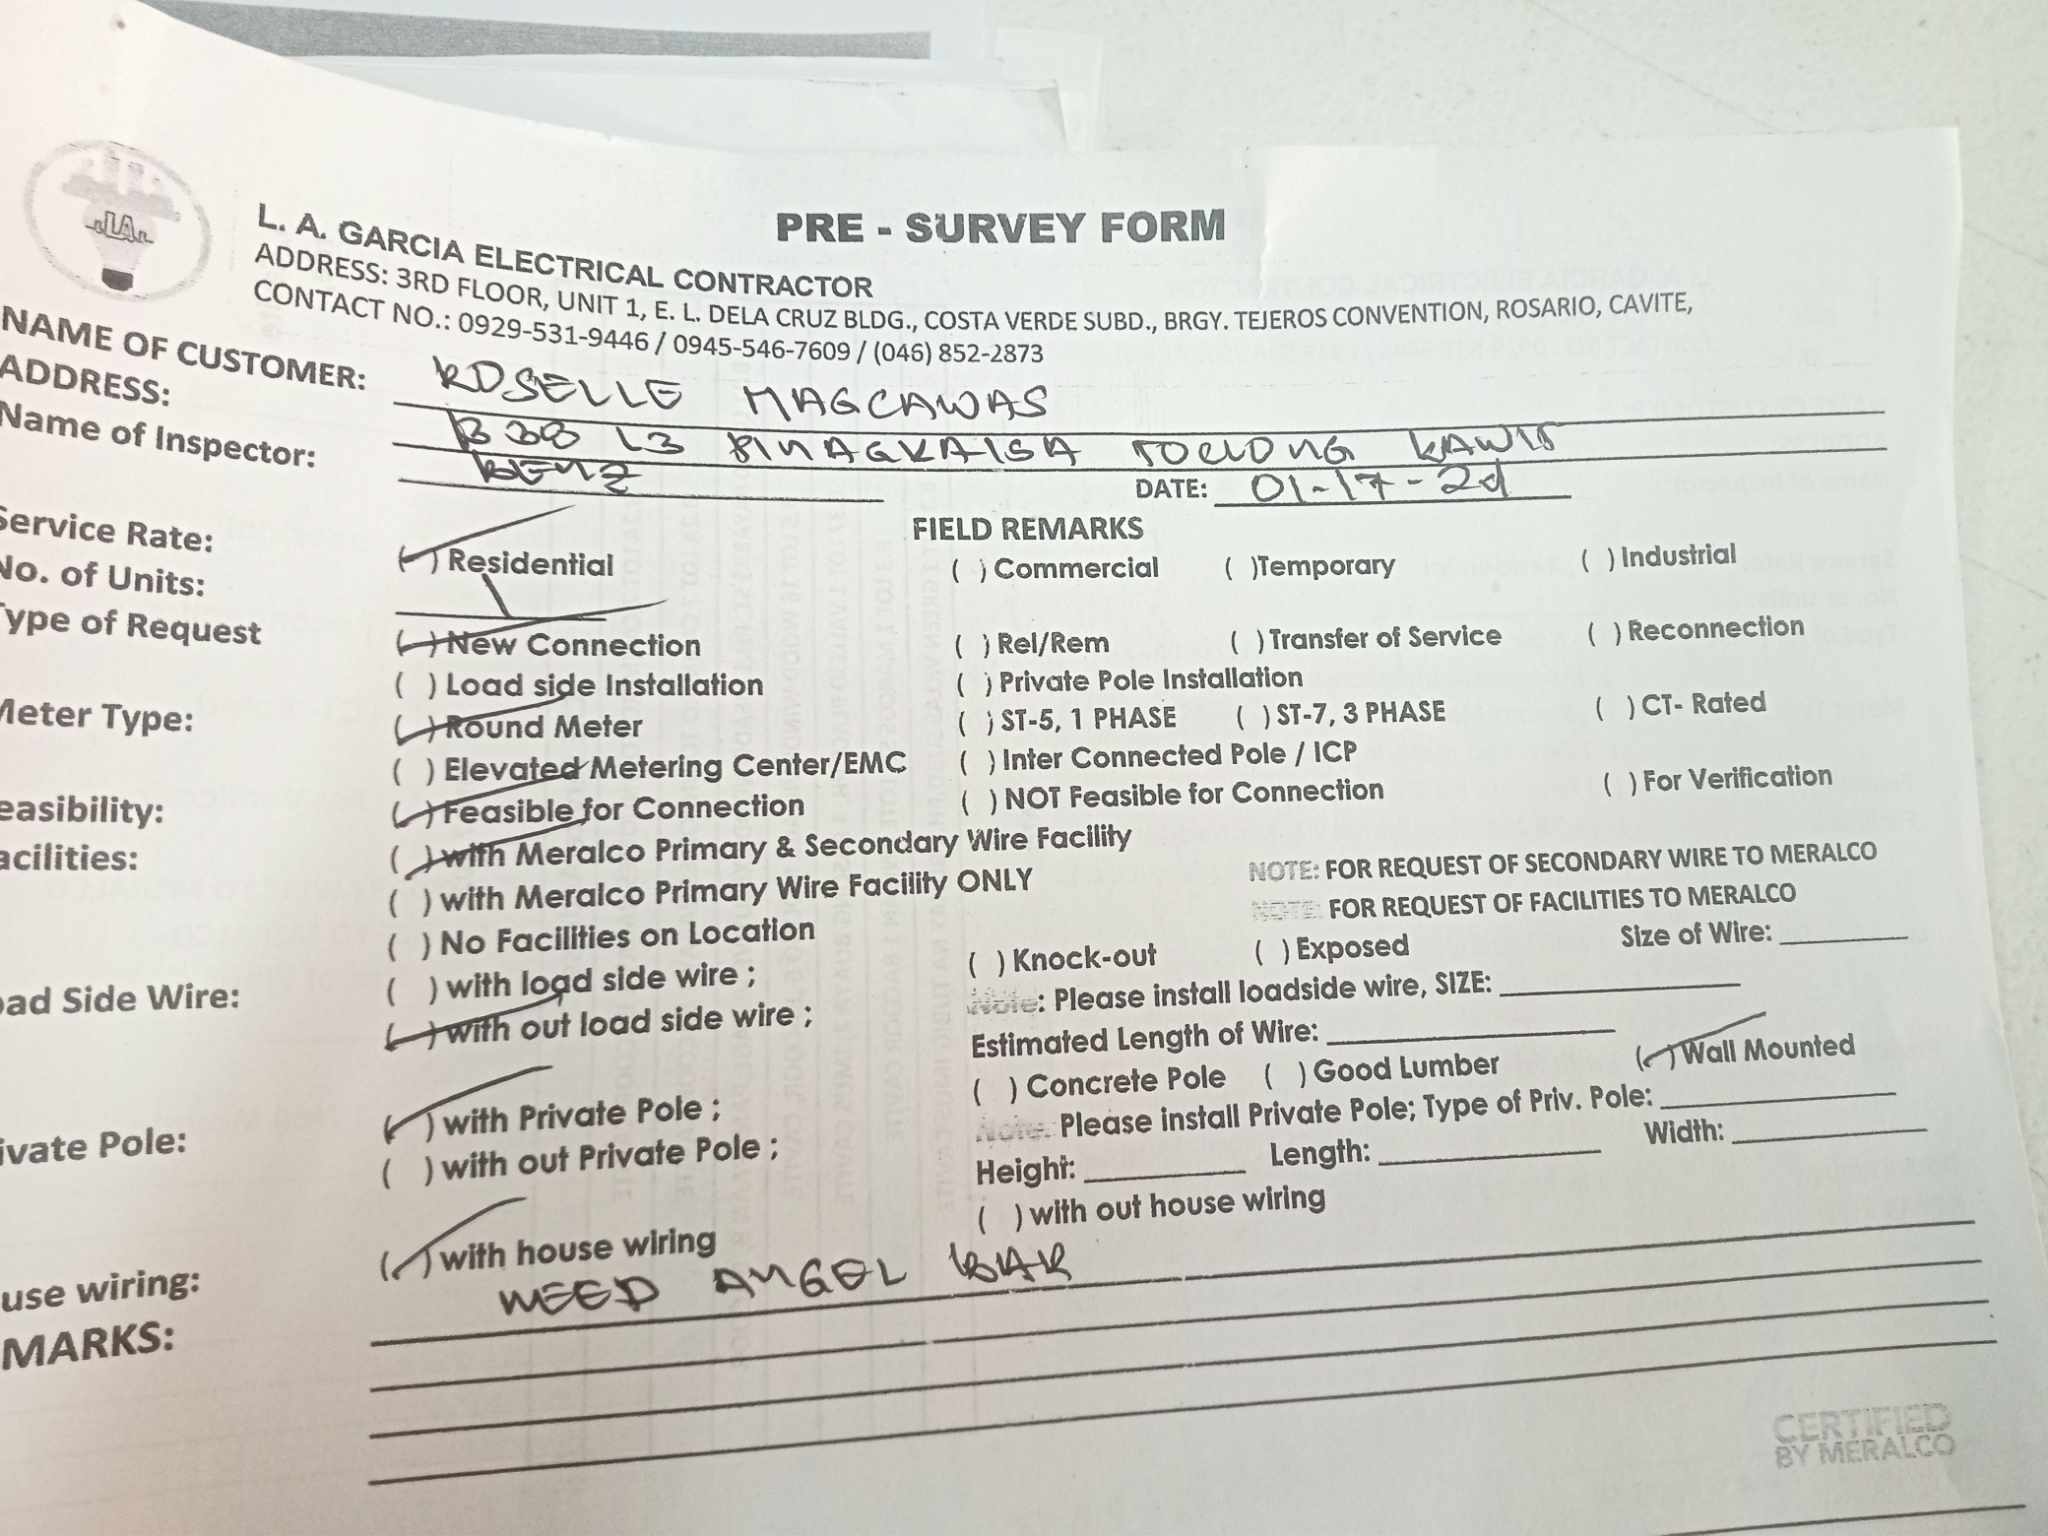 .LA.
PRE - SURVEY FORM
L. A. GARCIA ELECTRICAL CONTRACTOR
ADDRESS: 3RD FLOOR, UNIT 1, E. L. DELA CRUZ BLDG., COSTA VERDE SUBD., BRGY. TEJEROS CONVENTION, ROSARIO, CAVITE,
CONTACT NO.: 0929-531-9446 / 0945-546-7609 / (046) 852-2873
NAME OF CUSTOMER: ROSELLE MAGCAWAS
ADDRESS: B38 L3 PINAGKAISA TOCLONG KAWIT
Name of Inspector: BENZ DATE: 01-17-2d
FIELD REMARKS
Service Rate: (✓) Residential ( ) Commercial ( )Temporary ( ) Industrial
No. of Units: 1
Type of Request (✓) New Connection ( ) Rel/Rem ( ) Transfer of Service ( ) Reconnection
( ) Load side Installation ( ) Private Pole Installation
Meter Type: (✓) Round Meter ( ) ST-5, 1 PHASE ( ) ST-7, 3 PHASE ( ) CT- Rated
( ) Elevated Metering Center/EMC ( ) Inter Connected Pole / ICP
easibility: (✓) Feasible for Connection ( ) NOT Feasible for Connection ( ) For Verification
acilities: (✓) with Meralco Primary & Secondary Wire Facility
( ) with Meralco Primary Wire Facility ONLY NOTE: FOR REQUEST OF SECONDARY WIRE TO MERALCO
( ) No Facilities on Location NOTE: FOR REQUEST OF FACILITIES TO MERALCO
oad Side Wire: ( ) with load side wire ; ( ) Knock-out ( ) Exposed Size of Wire:
(✓) with out load side wire ; Note: Please install loadside wire, SIZE:
Estimated Length of Wire:
ivate Pole: (✓) with Private Pole ; ( ) Concrete Pole ( ) Good Lumber (✓) Wall Mounted
( ) with out Private Pole ; Note: Please install Private Pole; Type of Priv. Pole:
Height: Length: Width:
use wiring: (✓) with house wiring ( ) with out house wiring
MARKS: NEED ANGEL BAR
CERTIFIED
BY MERALCO